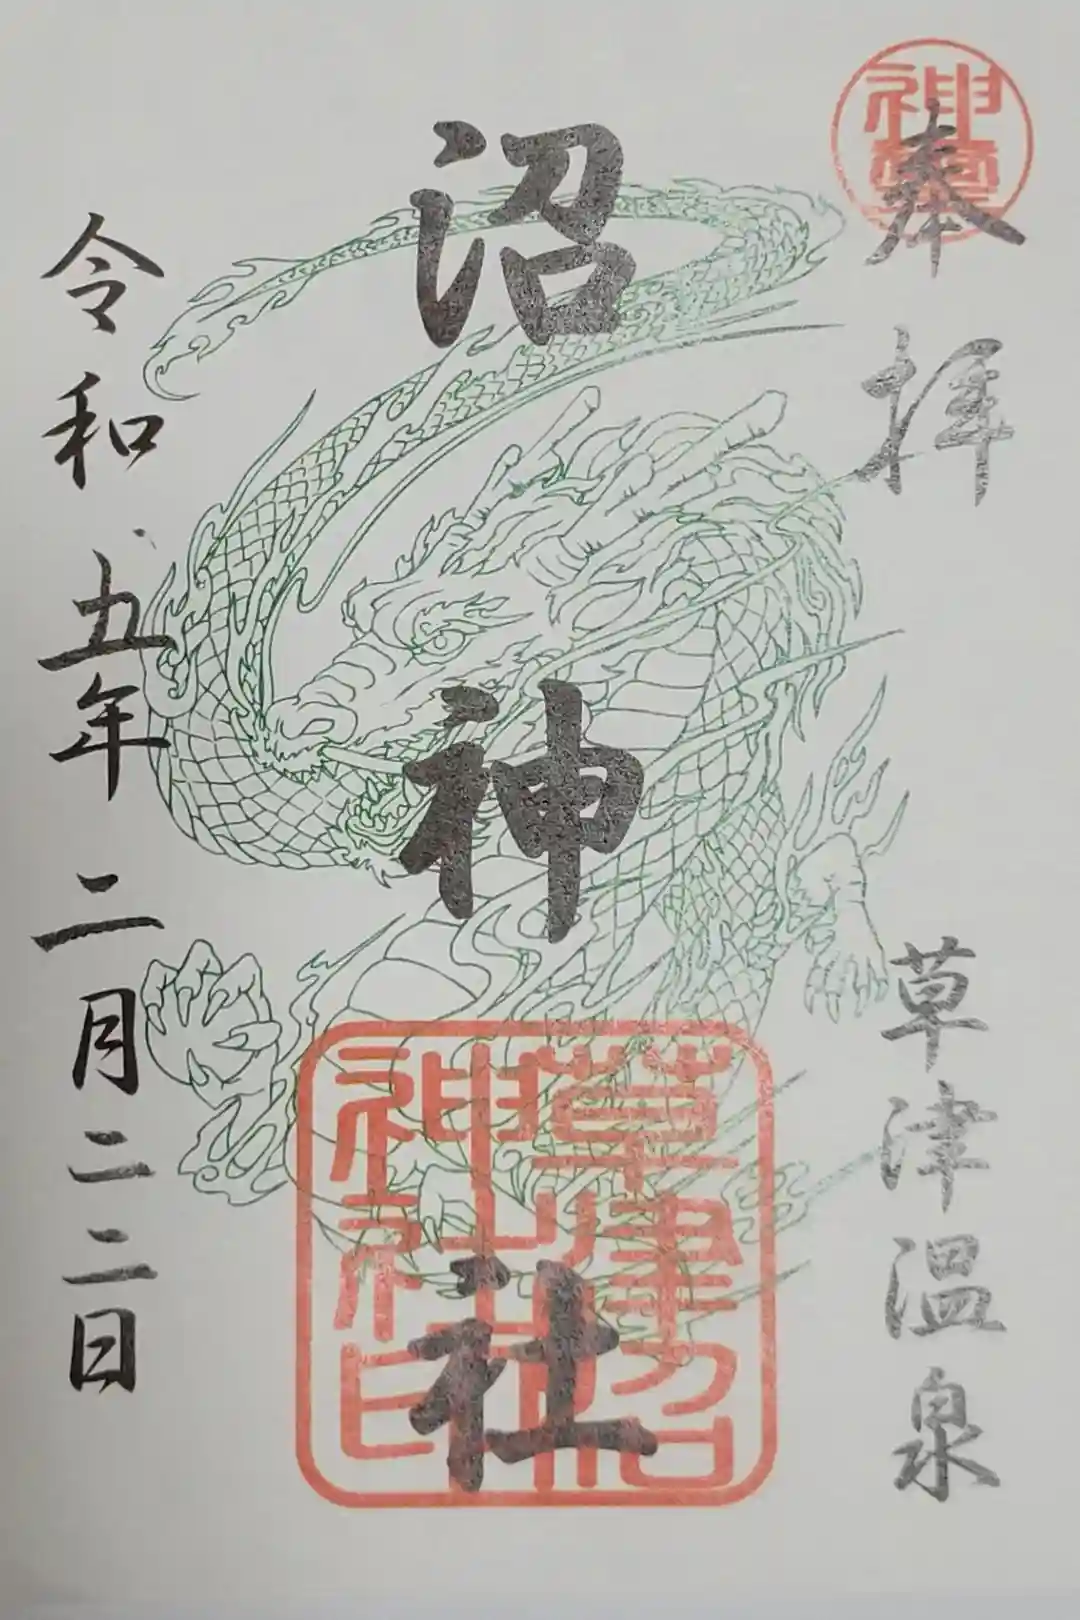 奉拝
草津温泉
沼神社
令和五年二月二二日
草津沼
神社印